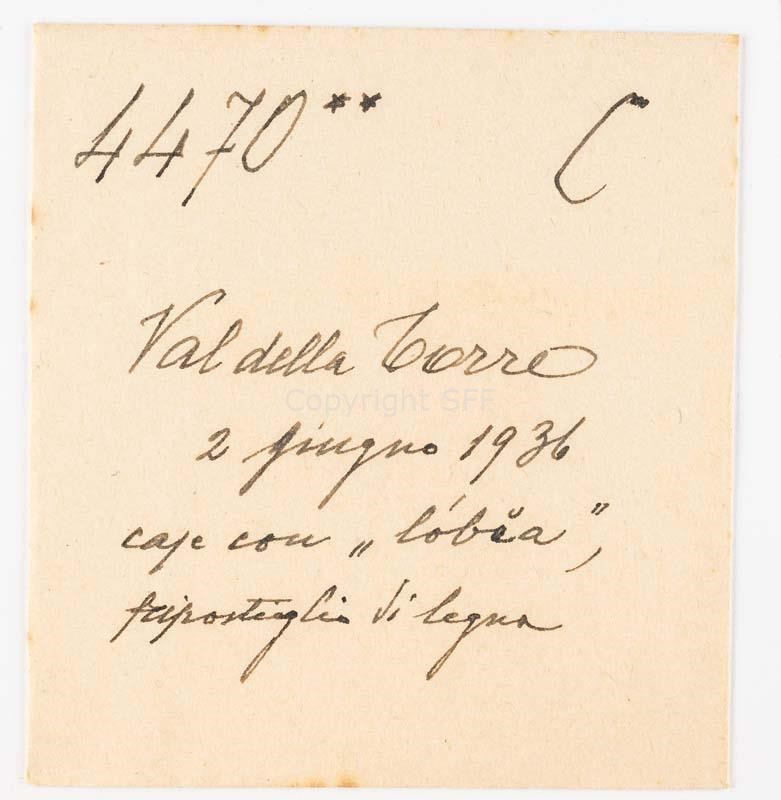 4470** C
Val della Torre
Copyright SFF
2 giugno 1936
case con „lóbi̯a”,
ripostiglio di legna